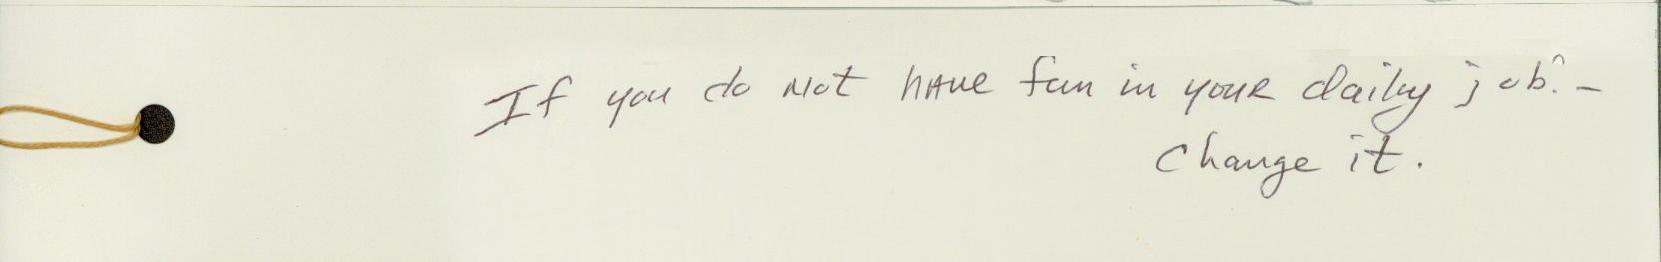 If you do not have fun in your daily job? -
Change it.